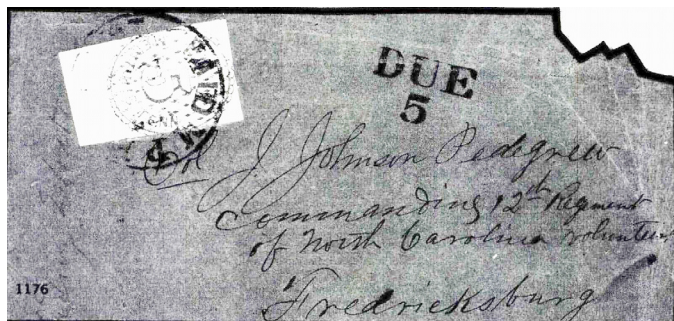 PAID
5
DUE
5
Col J. Johnson Pedegrew
Commanding 12th Regiment
of North Carolina volunteers
Fredericksburg
1176